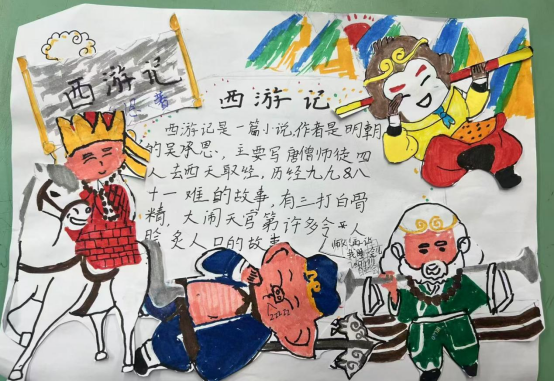 西游记
西游记
西游记是一篇小说,作者是明朝
的吴承恩,主要写唐僧师徒四
人去西天取经,历经九九8八
十一难的故事,有三打白骨
精,大闹天宫第许多令人
脍炙人口的故事
zzzzz